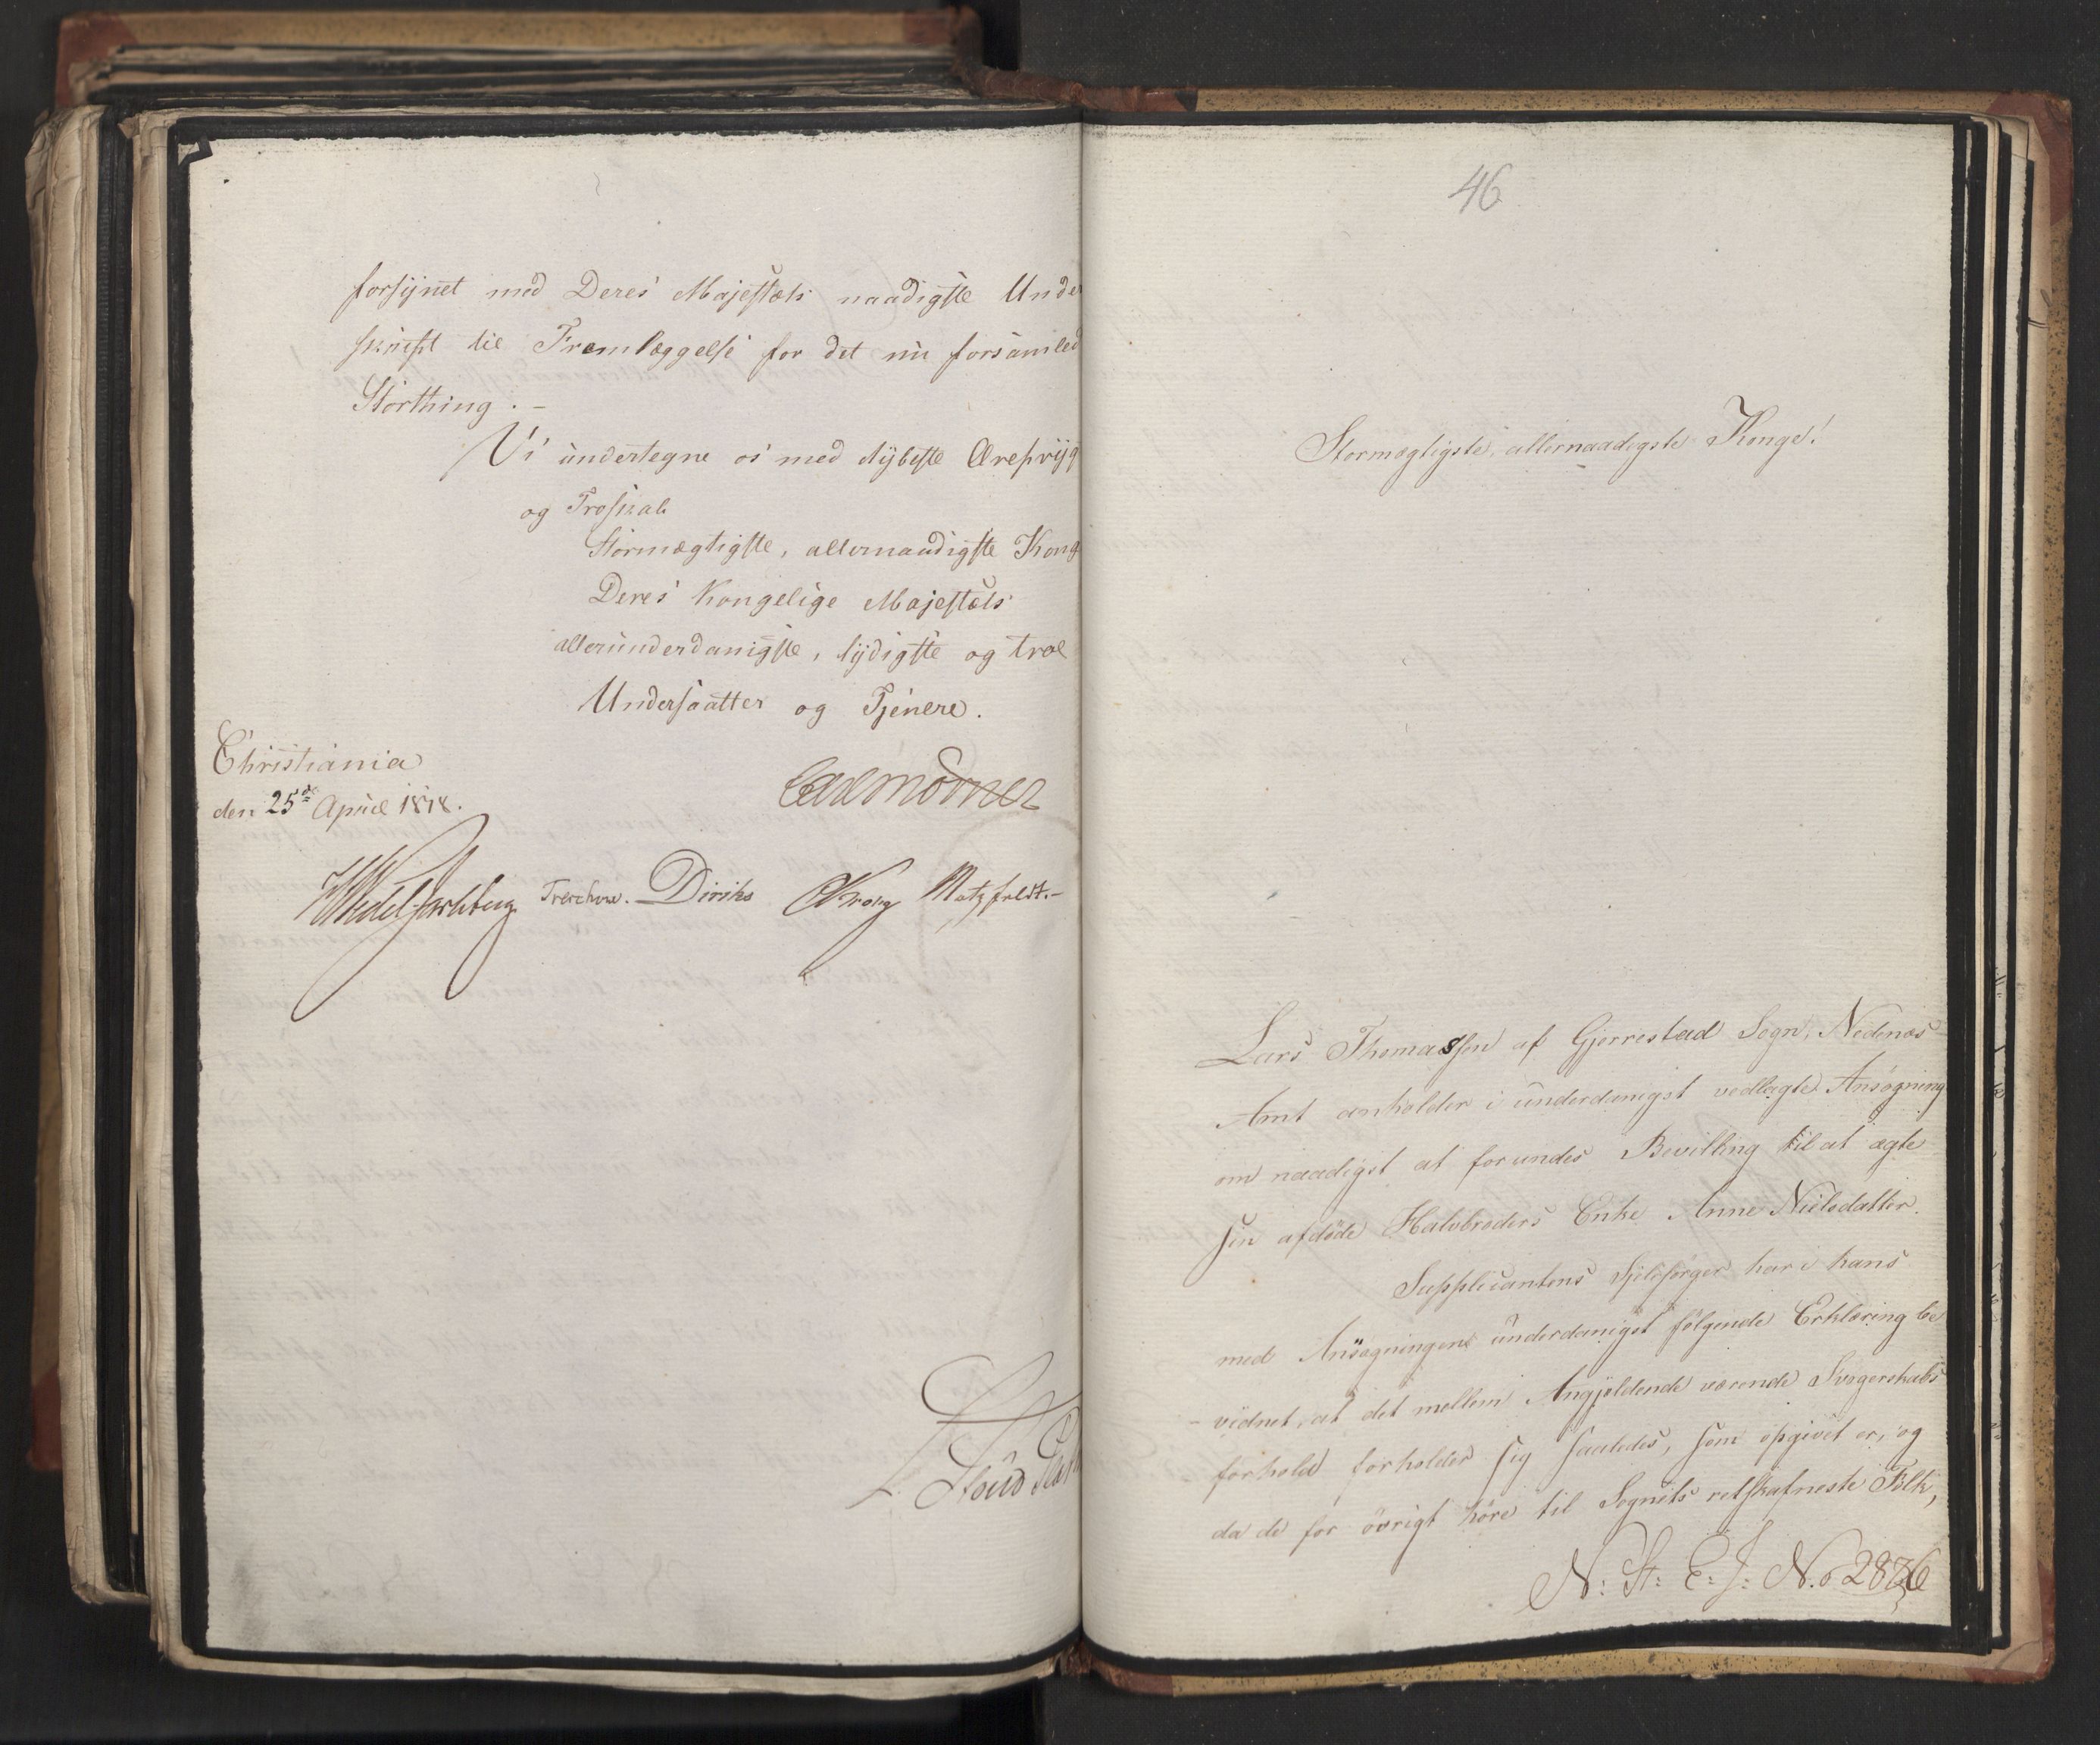 forsynet med Deres Majestæts naadigste Under
skrift til Fremlæggelse for det nu forsamled
Storthing. -
Vi undertegne os med dybeste Ærefrygt
og Troskab
Stormægtigste, allernaadigste Kong
Deres Kongelige Majestæts
allerunderdanigste, lydigste og troe
Undersaatter og Tjenere.
Christiania
den 25de April 1818.
Carl Mörner
Wedel Jarlsberg Treschow. Diriks CKrog Motzfeldt. -
46
Stormægtigste, allernaadigste Konge!
Lars Thomassen af Gjerrestad Sogn, Nedenæs
Amt anholder i underdanigst vedlagte Ansøgning
om naadigst at forundes Bevilling til at ægte
sin afdøde Halvbroders Enke Anne Nielsdatter.
Supplicantens Sjelesørger har i hans
med Ansøgningen underdanigst følgende Erklæring be
- vidnet, at det mellem Angjældende værende Svogerskabs
forhold forholder sig saaledes, som opgivet er, og
da de for øvrigt høre til Sognets retskafneste Folk,
N: St: E: J: No 2836